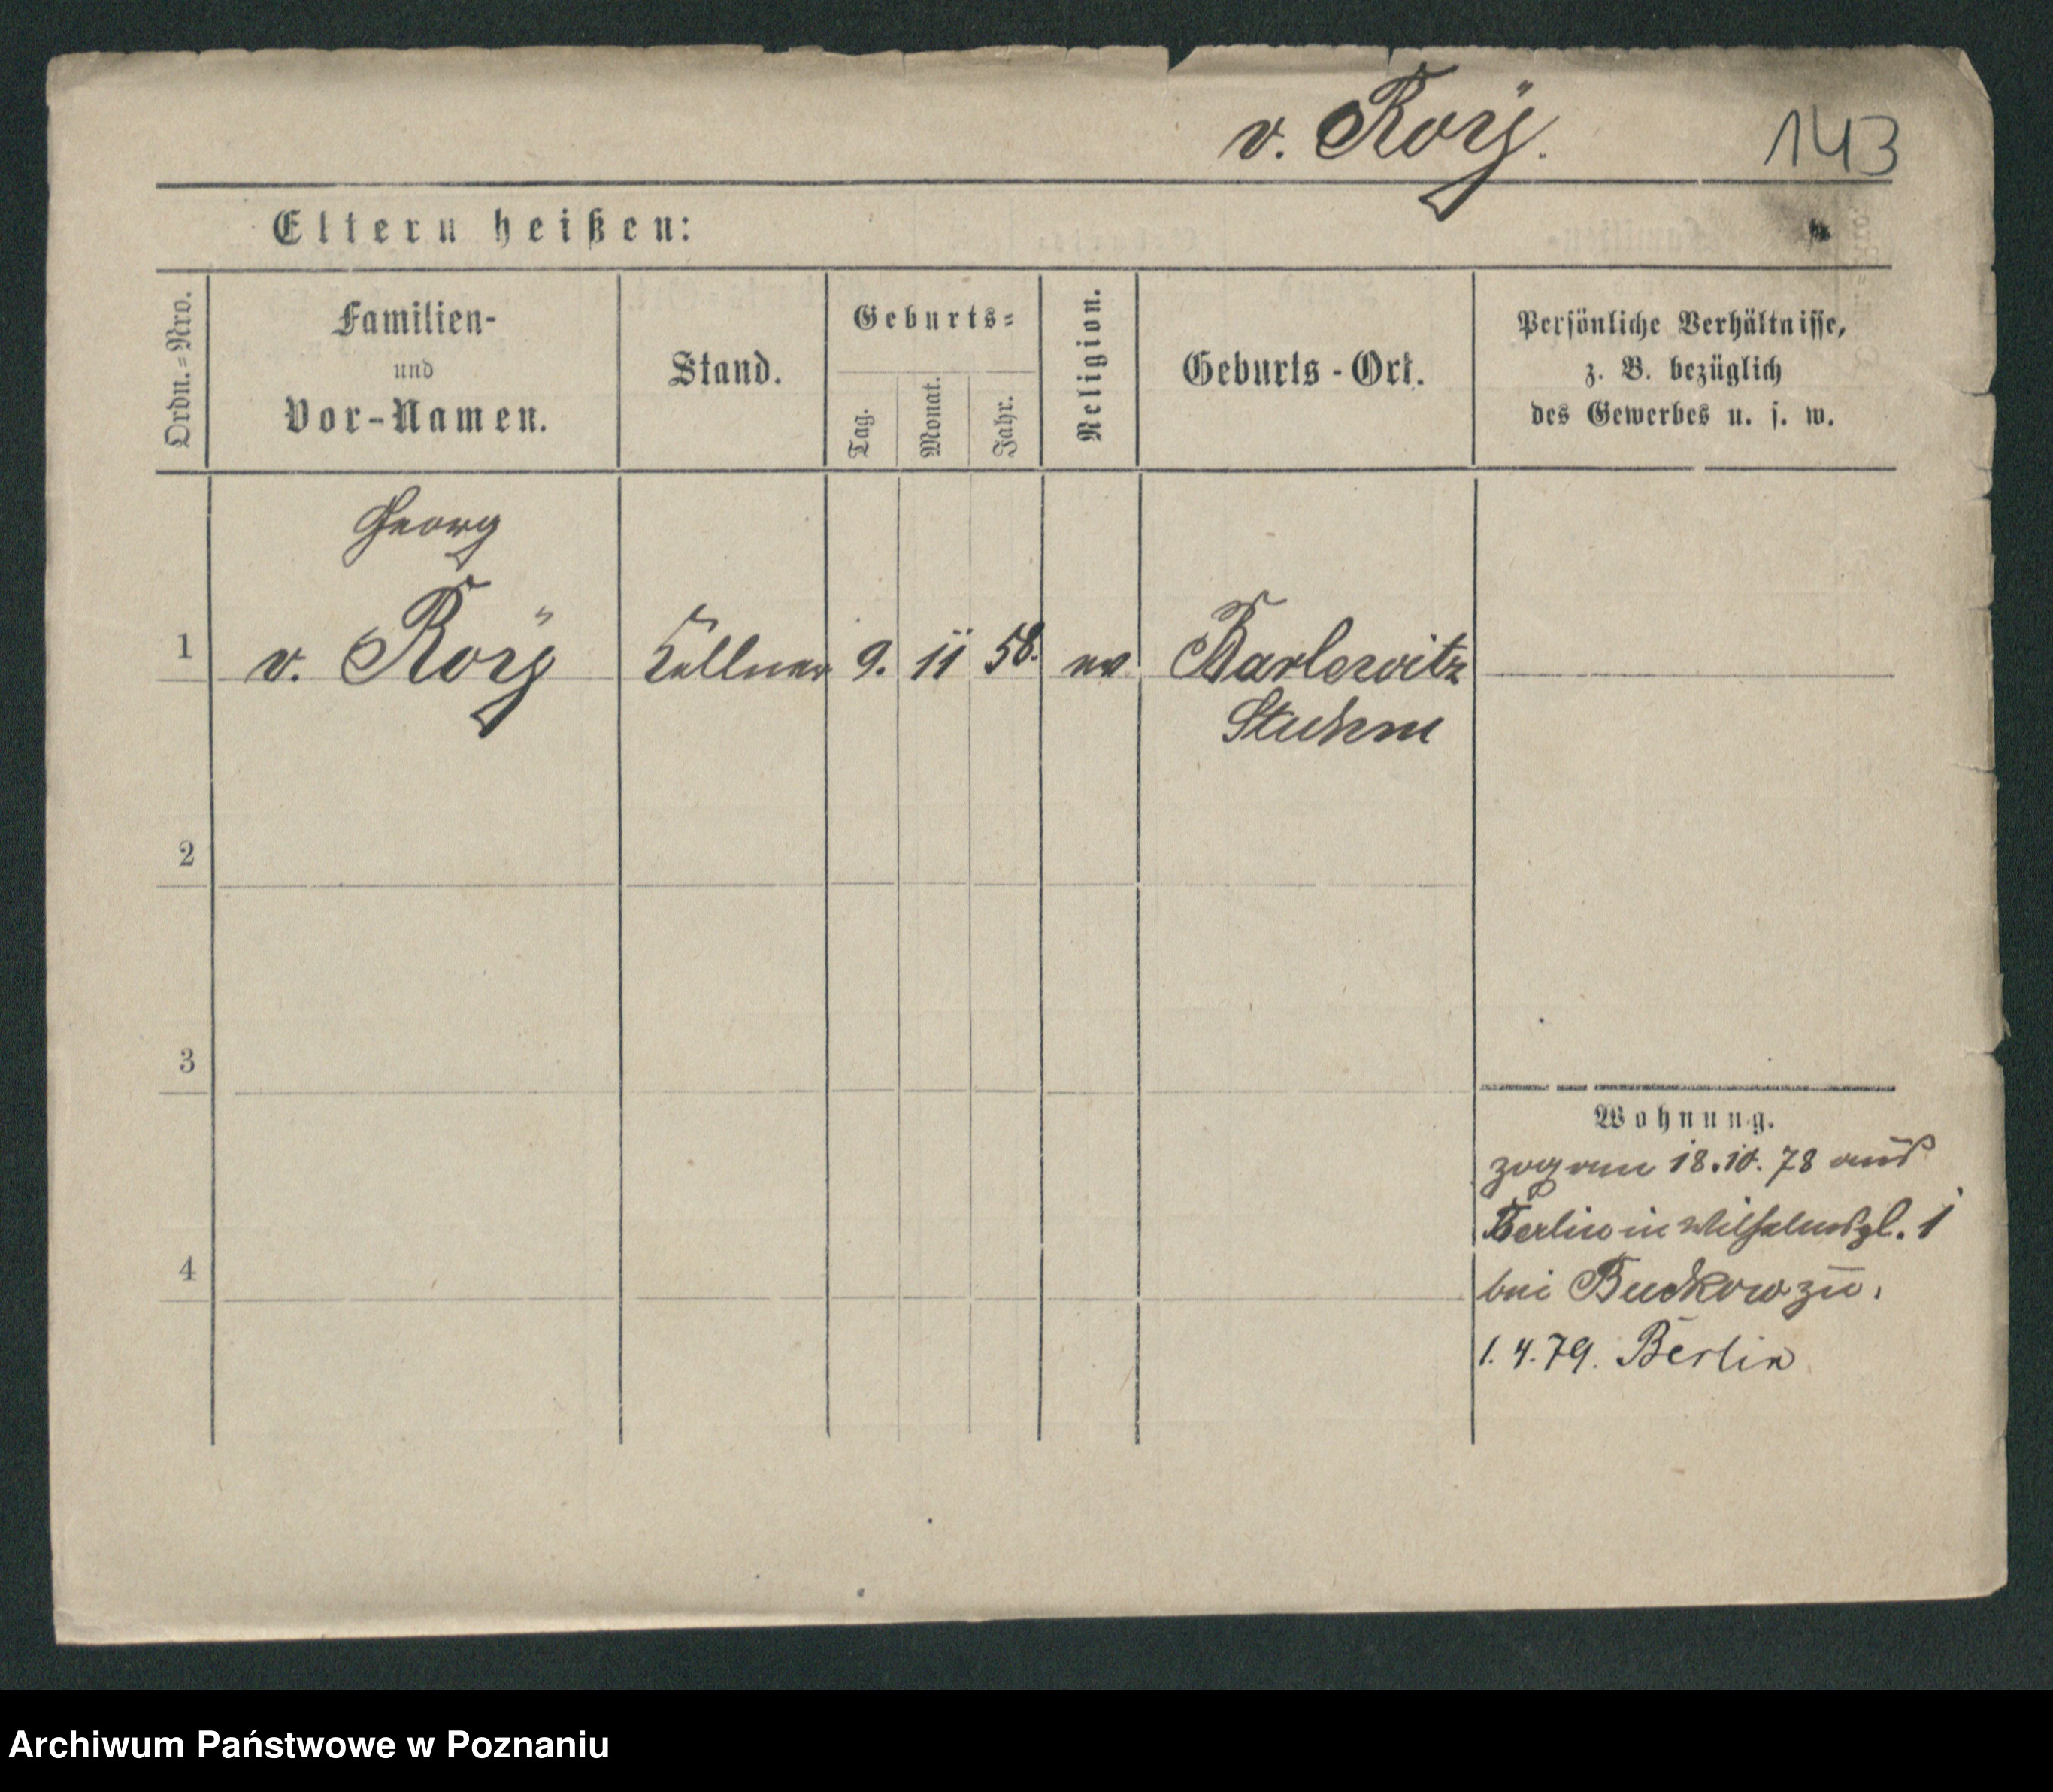 v. Roÿ.
143
Eltern heißen:
Ordn.=Nro.
Familien-
und
Vor-Namen.
Stand.
Geburts=
Tag.
Monat.
Jahr.
Religion.
Geburts-Ort.
Persönliche Verhältnisse,
z. B. bezüglich
des Gewerbes u. s. w.
Georg
1 v. Roÿ Kellner 9. 11 58. ev Barlewitz
Stuhm
2
3
Wohnung.
zog am 18.10.78 aus
Berlin in Wilhelmspl. 1
4
bei Buckow zu.
1.4.79. Berlin
Archiwum Państwowe w Poznaniu